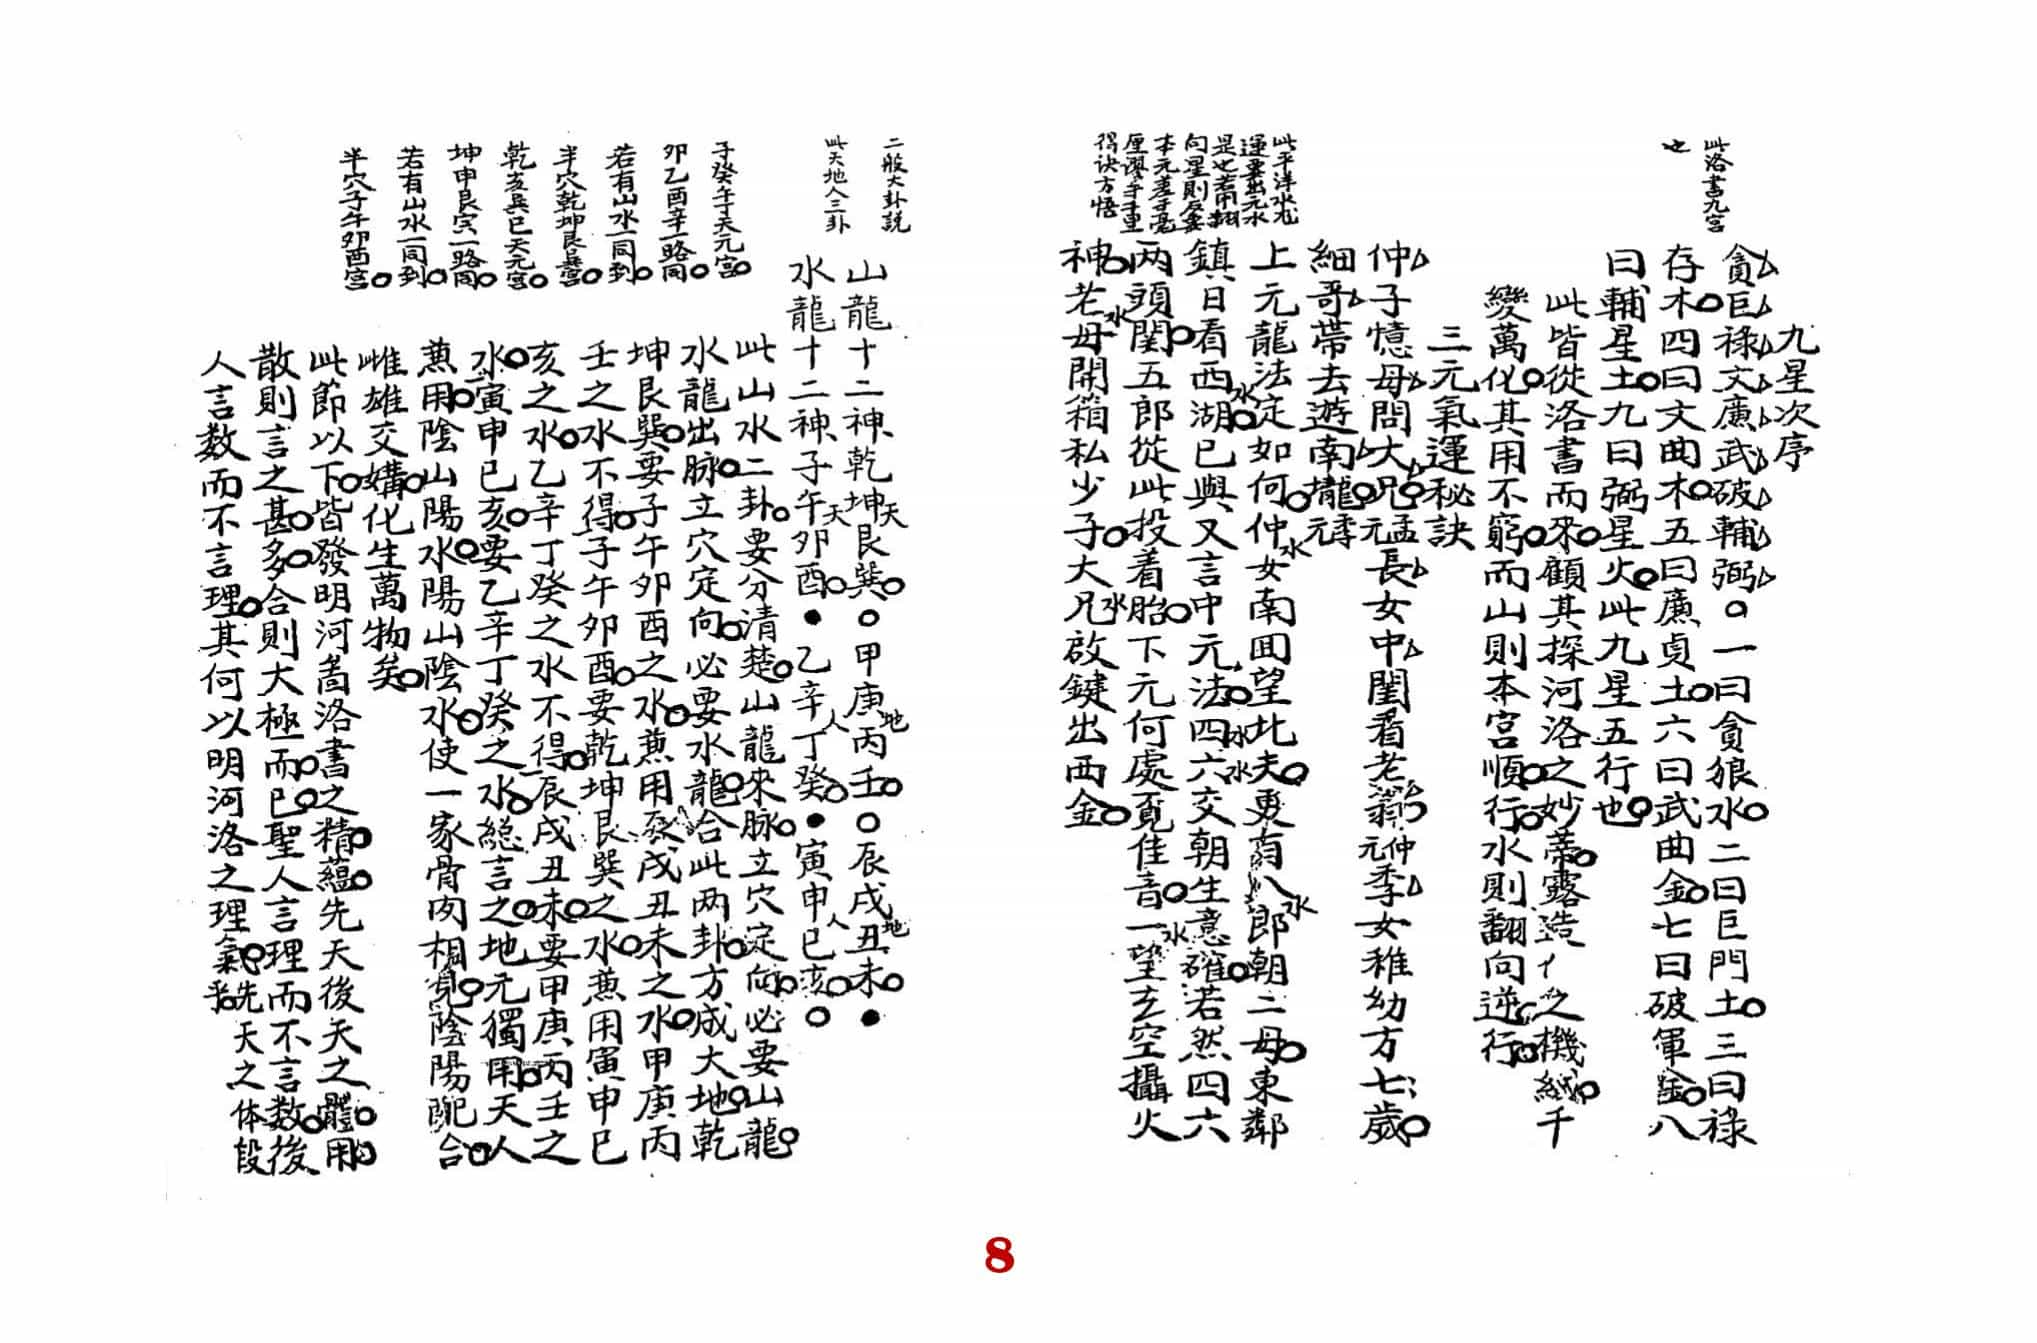 九星次序
此洛書九宮
也
貪巨祿文廉武破輔弼○一曰貪狼水二曰巨門土三曰祿
存木四曰文曲木五曰廉貞土六曰武曲金七曰破軍金八
曰輔星土九曰弼星火此九星五行也
此皆從洛書而來顧其探河洛之妙蒂露造化之機緘千
變萬化其用不窮而山則本宮順行水則翻向逆行
三元氣運秘訣
仲子憶母問大兄孟元長女中閨看老翁仲元季女稚幼方七歲
細哥帶去遊南隴季元
此平洋水龙
運要出元水
是也若用翻
向星則反要
本元差于毫
厘謬千里
得诀方悟
上元龍法定如何仲女南囬望北夫更有八郎朝二母東鄰
鎮日看西湖已與又言中元法四六交朝生意確若然四六
两頭闺五郎從此投着胎下元何處覓佳音一望玄空攝火
神老母開箱私少子大兄啟鍵出西金
二般大卦説
此天地人三卦
山龍十二神乾坤艮巽天○甲庚丙壬地○辰戌丑未地●
水龍十二神子午卯酉天●乙辛丁癸人●寅申巳亥人○
此山水二卦要分清楚山龍來脉立穴定向必要山龍
水龍出脉立穴定向必要水龍合此两卦方成大地乾
坤艮巽要子午卯酉之水兼用辰戌丑未之水甲庚丙
壬之水不得子午卯酉要乾坤艮巽之水兼用寅申巳
亥之水乙辛丁癸之水不得辰戌丑未要甲庚丙壬之
水寅申巳亥要乙辛丁癸之水総言之地元獨用天人
兼用陰山陽水陽山陰水使一家骨肉相見陰陽配合
雌雄交媾化生萬物矣
子癸午丁天元宮
卯乙酉辛一路同
若有山水一同到
半穴乾坤艮巽宮
乾亥巽巳天元宮
坤申艮寅一路同
若有山水一同到
半穴子午卯酉宮
此節以下皆發明河啚洛書之精蘊先天後天之體用
散則言之甚多合則大極而已聖人言理而不言数後
人言数而不言理其何以明河洛之理氣先天之体段乎
8